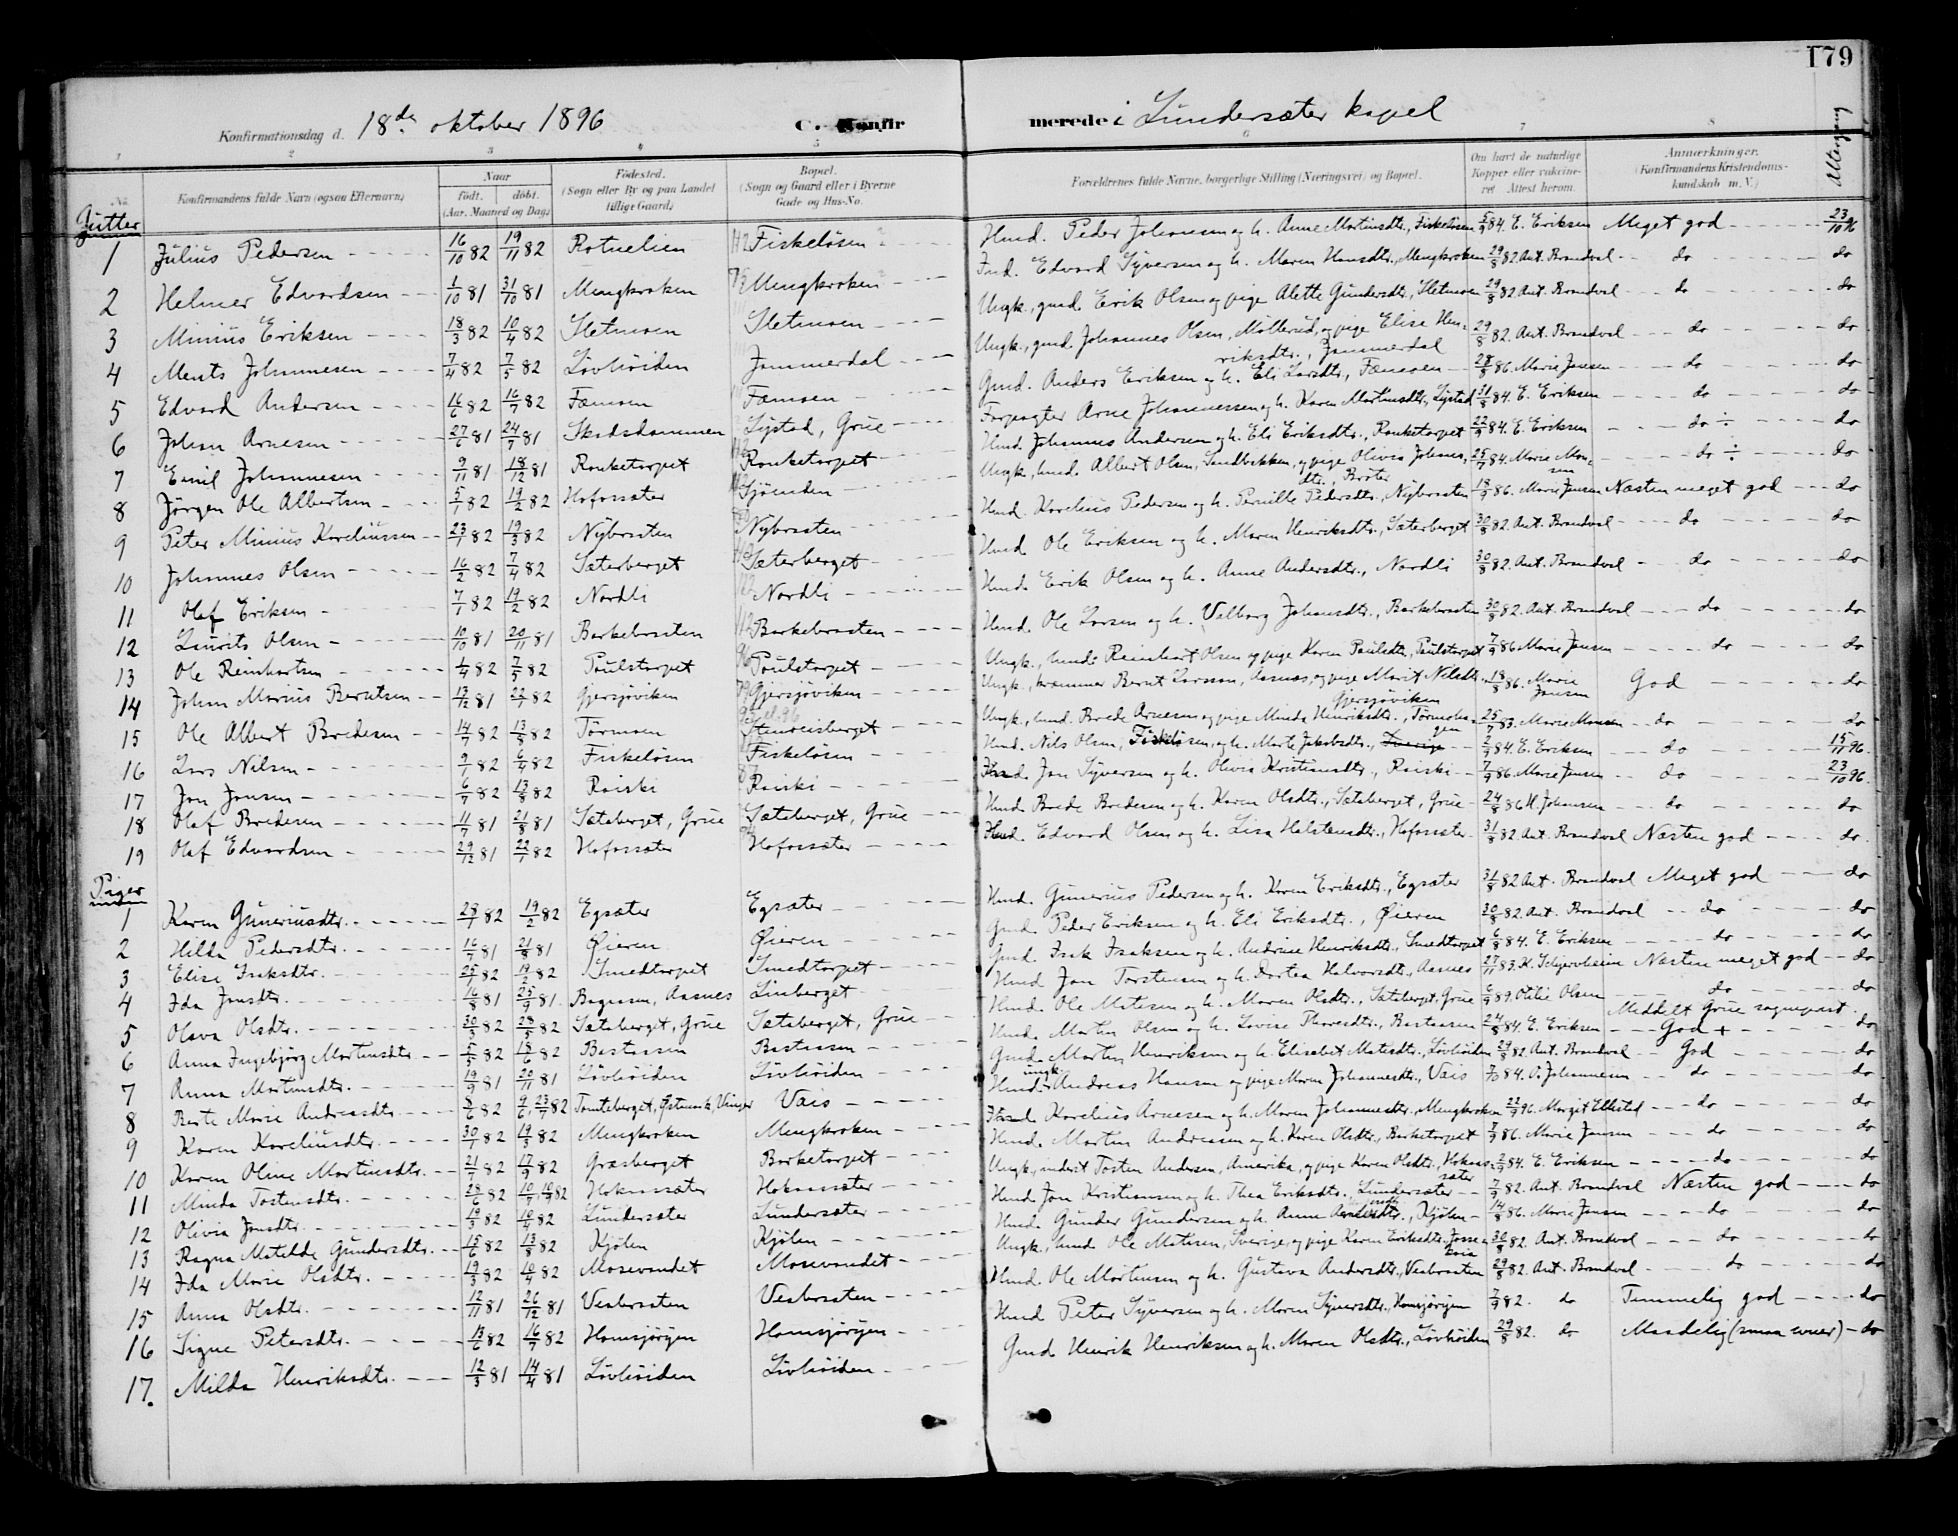 179
Konfirmationsdag d. 18de oktober 1896 C. Konfir merede i Lundersæter kapel
1 2 3 4 5 6 7 8
No. Konfirmandens fulde Navn (ogsaa Efternavn) Naar født. døbt. (Aar, Maaned og Dag) Fødested. (Sogn eller By og paa Landet tillige Gaard) Bopæl. (Sogn og Gaard eller i Byerne Gade og Hus-No. Forældrenes fulde Navne, borgerlige Stilling (Næringsvei) og Bopæl. Om havt de naturlige Kopper eller vakcineret Attest herom. Anmærkninger. (Konfirmandens Kristendomskundskab m. V.) Altergang
Gutter
1 Julius Pedersen 16/10 82 19/11 82 Rotnelien Fiskeløsen Hmd. Peder Johansen og h. Anne Martinsdtr., Fiskeløsen 5/9 84. E. Eriksen Meget god 23/10 96
2 Helmer Edvardsen 1/10 81 31/10 81 Mengkroken Mengkroken Ind. Edvard Syversen og h. Maren Hansdtr., Mengkroken 29/8 82 Ant. Brandvol do do
3 Minius Eriksen 18/3 82 10/4 82 Sletmoen Sletmoen Ungk., gmd. Erik Olsen og pige Alette Gundersdtr., Sletmoen 29/8 82 Ant. Brandvol do do
4 Ments Johannesen 7/4 82 7/5 82 Løvhöiden Jammerdal Ungk., gmd. Johannes Olsen, Møllerud, og pige Elise Henriksdtr., Jammerdal 29/8 82. Ant. Brandvol do do
5 Edvard Andersen 16/6 82 16/7 82 Fæmoen Fæmoen Gmd. Anders Eriksen og h. Eli Larsdtr., Fæmoen 28/8 86. Marie Jansen do do
6 Johan Arnesen 27/6 81 24/7 81 Skodsdammen Lystad, Grue Forpagter Arne Johannessen og h. Karen Martinsdtr., Lystad 31/8 84. E. Eriksen do do
7 Emil Johannesen 9/11 81 18/12 81 Ronketorpet Ronketorpet Hmd. Johannes Andersen og h. Eli Eriksdtr., Ronketorpet 22/9 84. E. Eriksen do ÷ do
8 Jørgen Ole Albertsen 5/1 82 19/2 82 Hofossæter Sjøenden Ungk., hmd. Albert Olsen, Sandbakken, og pige Olivia Johansdtr., Bråter 25/7 84. Marie Monsen do ÷ do
9 Peter Minius Koreliussen 23/1 82 19/3 82 Nybraaten Nybraaten Hmd. Korelius Pedersen og h. Pernille Pedersdtr., Nybraaten 18/9 86. Marie Jansen Næsten meget god do
10 Johannes Olsen 16/2 82 7/4 82 Sæterberget Sæterberget Hmd. Ole Eriksen og h. Maren Henriksdtr., Sæterberget 30/8 82. Ant. Brandvol do do
11 Olaf Eriksen 7/1 82 19/2 82 Nordli Nordli Hmd. Erik Olsen og h. Anne Andersdtr., Nordli 30/8 82. Ant. Brandvol do do
12 Laurits Olsen 10/10 81 20/11 81 Barkebraaten Barkebraaten Hmd. Ole Larsen og h. Valborg Johansdtr., Barkebraaten 30/8 82. Ant. Brandvol do do
13 Ole Reinhartsen 4/4 82 7/5 82 Poulstorpet Poulstorpet Ungk., hmd. Reinhart Olsen og pige Karen Paulsdtr., Paulstorpet 7/9 86 Marie Jansen do do
14 Johan Marius Berntsen 13/12 81 22/1 82 Gjersjøviken Gjersjøviken Ungk., kræmmer Bernt Larsson, Aasnæs, og pige Marit Nilsdtr., Gjersjøviken 18/8 86. Marie Jansen God do
15 Ole Albert Bredesen 14/7 82 13/8 82 Tørmoen Stenreisberget Ungk., hmd. Brede Arnesen og pige Minda Henriksdtr. 25/7 83. Marie Monsen do do
16 Lars Nilsen 9/1 82 6/4 82 Fiskeløsen Fiskeløsen Hmd. Nils Olsen, Fiskeløsen, og h. Marte Jakobsdtr., Sverige 2/9 84. E. Eriksen do 15/11 96.
17 Jon Jonsen 6/7 82 13/8 82 Roiski Roiski Hmd. Jon Syversen og h. Olivia Kristiansdtr., Roiski 7/9 86. Marie Jansen do 23/10 96.
18 Olaf Bredesen 11/7 81 21/8 81 Sætaberget, Grue Sætaberget, Grue Hmd. Brede Bredesen og h. Karen Olsdtr., Sætaberget, Grue 24/8 86 H. Johansen do do
19 Olaf Edvardsen 29/12 81 22/1 82 Hofossæter Hofossæter Hmd. Edvard Olsen og h. Lisa Halstensdtr., Hofossæter 31/8 82 Ant. Brandvol Næsten god do.
Piger
1 Karen Guneriusdtr. 28/1 82 19/2 82 Egsæter Egsæter Hmd. Gunerius Pedersen og h. Karen Eriksdtr., Egsæter 31/8 82 Ant. Brandvol Meget god do
2 Hilda Pedersdtr. 16/7 81 21/8 81 Øieren Øieren Gmd. Peder Eriksen og h. Eli Eriksdtr., Øieren 30/8 82. Ant. Brandvol do do
3 Elise Isaksdtr. 25/1 82 19/2 82 Smedtorpet Smedtorpet Gmd. Isak Isaksen og h. Andrine Henriksdtr., Smedtorpet 6/9 84. E. Eriksen do do
4 Ida Jonsdtr. 16/8 81 25/9 81. Bogessen, Aasnes Linberget Hmd Jon Torstensen og h. Dortea Halvorsdtr., Aasnes 27/11 83. H. Schjerolheim Næsten meget god do
5 Olava Olsdtr. 30/3 82 28/5 82 Sætaberget, Grue Sætaberget, Grue Hmd. Ole Matisen og h. Maren Olsdtr., Sætaberget, Grue 6/9 89. Otilie Olsen do Meddelt Grue sogneprest. do
6 Anna Ingebjörg Martinsdtr 5/5 82 18/6 82 Bastaasen Bastaasen Hmd. Martin Olsen og h. Lovise Thoresdtr., Bastaasen 24/8 84. E. Eriksen God + do
7 Anna Martinsdtr. 19/9 81 20/11 81 Løvhöiden Løvhöiden Gmd. Martin Henriksen og h. Elisabet Matisdtr., Løvhöiden 29/8 82. Ant. Brandvol God do
8 Berte Marie Andreasdtr. 5/6 82 9/6, 23/7 82 Tomteberget, Østmark, Vinger Vais Hmd. ungk. Andreas Hansen og pige Maren Johannesdtr., Vais 7/10 84. O. Johannesen do do
9 Karen Koreliusdtr. 30/1 82 19/3 82 Mengkroken Mengkroken Hmd. Korelius Arnesen og h. Maren Johannesdtr., Mengkroken 22/9 96. Margit Ellestad do do
10 Karen Oline Martinsdtr. 21/7 82 17/9 82 Græsberget Barketorpet Hmd. Martin Andreasen og h. Karen Olsdtr., Barketorpet 7/9 86. Marie Jansen do do
11 Minda Tostensdtr. 28/6 82 10/7, 10/9 82 Hokaassæter Hokaassæter Ungk., inderst Tosten Andersen, Amerika, og pige Karen Olsdtr., Hokaassæter 2/9 84. E. Eriksen do do
12 Olivia Jonsdtr. 19/3 82 10/4 82 Lundersæter Lundersæter Hmd. Jon Kristiansen og h. Thea Eriksdtr., Lundersæter 7/9 82. Ant. Brandvol Næsten god do
13 Ragna Matilde Gundersdtr. 15/6 82 13/8 82 Kjølen Kjølen Hmd. Gunder Gundersen og h. Anne, Kjølen 14/8 86. Marie Jansen do do
14 Ida Marie Olsdtr. 19/3 82 10/4 82 Mosevandet Mosevandet Ungk., hmd. Ole Matisen, Sverige, og pige Karen Eriksdtr. 30/8 82. Ant. Brandvol do do
15 Anna Olsdtr. 12/11 81 26/12 81 Vesbraaten Vesbraaten Hmd. Ole Mortensen og h. Gustava Andersdtr., Vesbraaten 29/8 82. Ant. Brandvol do do
16 Signe Petersdtr. 13/6 82 16/7 82 Homsjøryen Homsjøryen Hmd Peter Syversen og h. Maren Syversdtr., Homsjøryen 7/9 82. do Temmelig god do
17. Milda Henriksdtr. 12/3 81 14/4 81 Løvhöiden Løvhöiden Gmd. Henrik Henriksen og h. Maren Olsdtr., Løvhöiden 29/8 82. do Maadelig (smaa evner) do